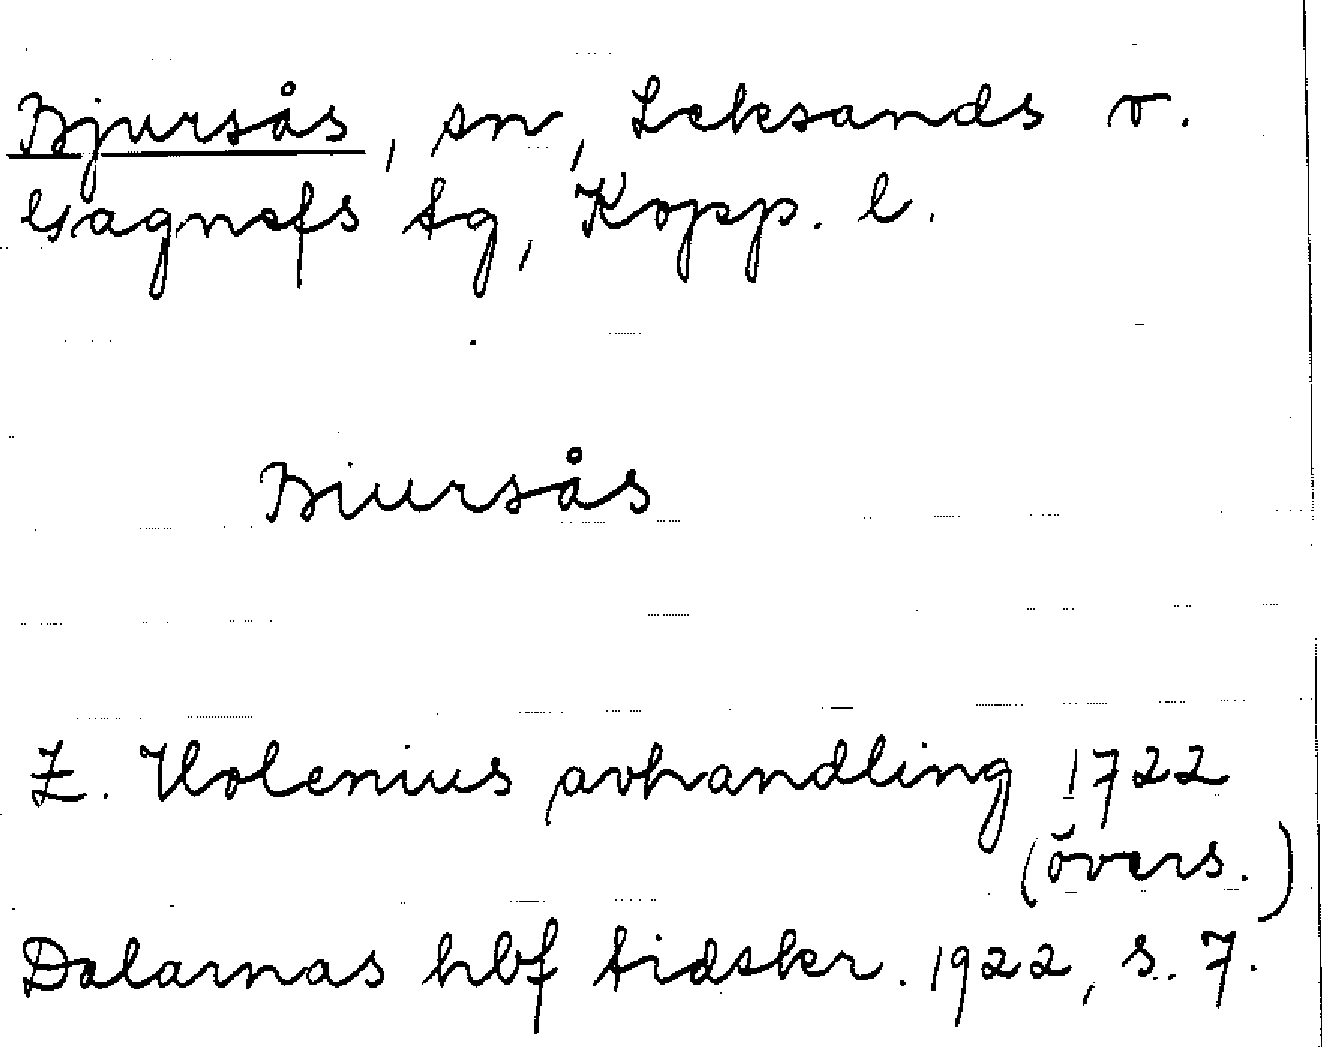 Bjursås, sn, Leksands o.
Gagnefs tg, Kopp. l.
Biursås
Z. Holenius avhandling 1722
(övers.)
Dalarnas hbf tidskr. 1922, s. 7.